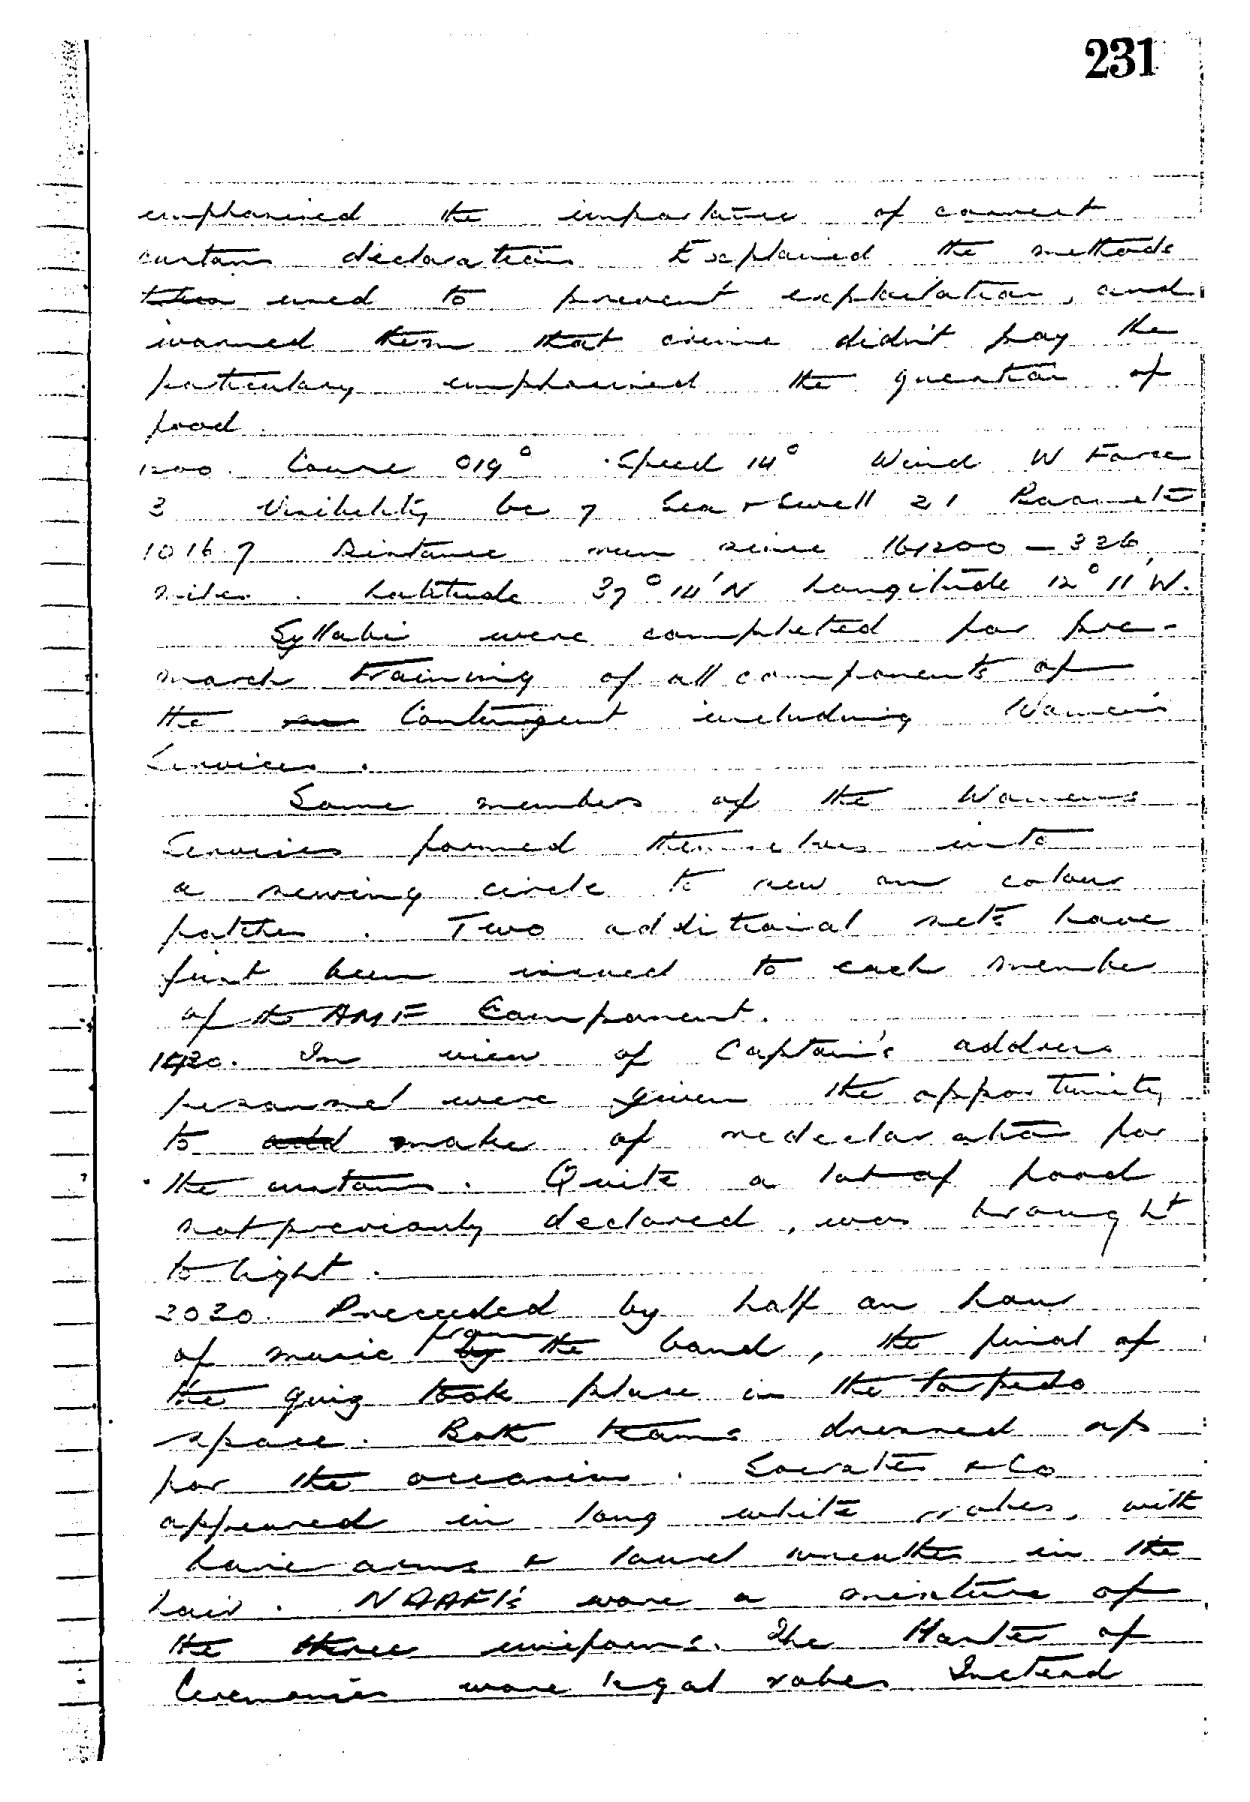 231
emphasised the importance of correct
custom declaration Explained the methods
used to prevent exploitation, and
warned them that crime didn't pay He
particulary emphasised the question of
food.
1200. Course 019° Speed 14° Wind W Force
3 Visibility bc 7 Sea & Swell 21 Baromete
1016.7 Distance run since 161200 – 326
miles. Latitude 37° 14' N Longitude 12° 11' W.
Syllabi were completed for pre-
march training of all components of
the Contingent including Women's
Services.
Some members of the Womens
Services formed themselves into
a sewing circle to sew on colour
patches. Two additional sets have
just been issued to each member
of the AMF Component.
In view of Captain's address
personnel were given the opportunity
to make of redeclaration for
the customs. Quite a lot of food
not previously declared, was brought
to light.
2020. Preceded by half an hour
of music from the band, the final of
the quiz took place in the torpedo
space. Both teams dressed up
for the occasion. Socrates & Co
appeared in long white robes, with
bare arms & laurel wreathes in the
hair. NAAFI's wore a mixture of
the three uniforms. The Master of
Ceremonies wore legal robes Instead